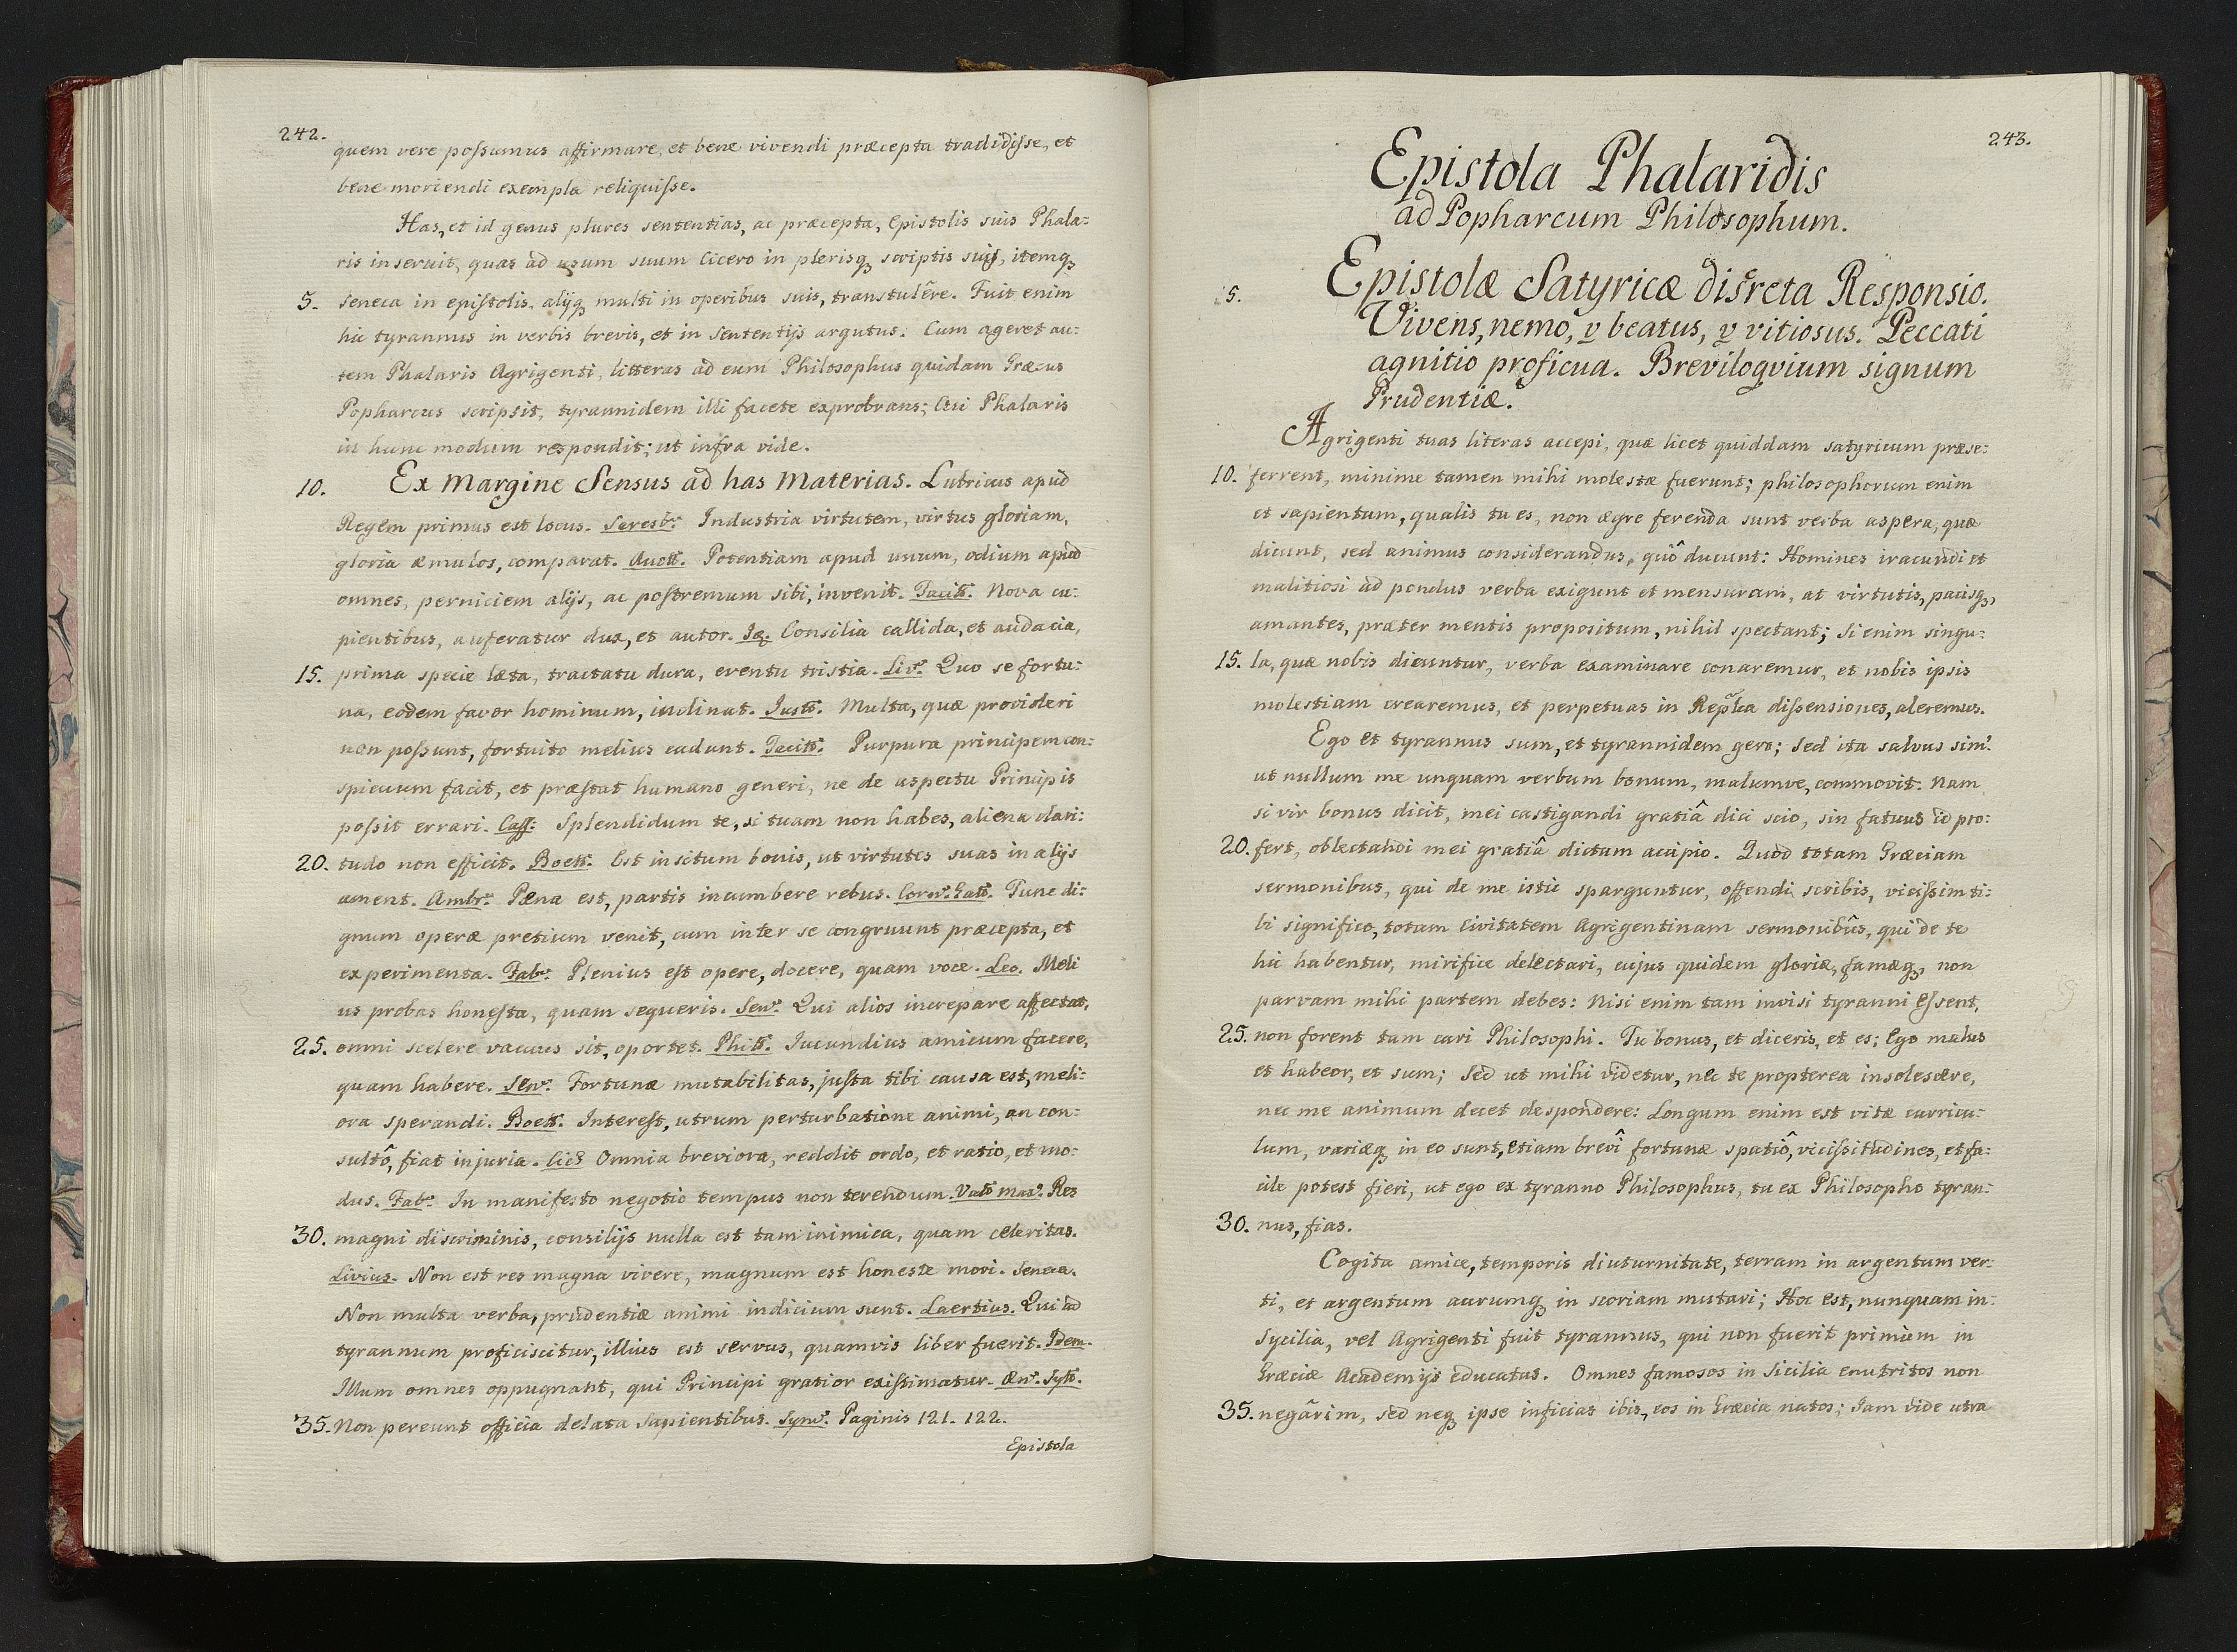 242.
quem vere poſsumus affirmare, et bene vivendi præcepta tradidiſse, et
bene moriendi exempla reliquiſse.
Has, et id genus plures sententias, ac præcepta, Epistolis suis Phala:
ris inseruit, quas ad usum suum Cicero in plerisq; scriptis suis, itemq;
5. Seneca in epiſtolis. alijq; multi in operibus suis, transtulêre. Fuit enim
hic tyrannus in verbis brevis, et in Sententijs argutus. Cum ageret au:
tem Phalaris Agrigenti, litteras ad eum Philosophus quidam Græcus
Popharcus scripsit, tyrannidem illi facete exprobrans; Cui Phalaris
in hunc modum respondit; ut infra vide.
10. Ex Margine Sensus ad has Materias. Lubricus apud
Regem primus est locus. Saresbr: Industria virtutem, virtus gloriam,
gloria æmulos, comparat. Auctt. Potentiam apud unum, odium apud
omnes, perniciem alijs, ac poſtremum sibi, invenit. Tacitt. Nova cu:
pientibus, auferatur dux, et autor. Iq. Consilia callida, et audacia,
15. prima specie læta, tractatu dura, eventu tristia. Liv: Quo se fortu:
na, eodem favor hominum, inclinat. Justt. Multa, quæ provideri
non poſsunt, fortuito melius cadunt. Tacitt. Purpura principem con:
spicuum facit, et præſtat humano generi, ne de aspectu Principis
poſsit errari. Caſſ: Splendidum te, si tuam non habes, aliena clari:
20. tudo non efficit. Boett. Est insitum bonis, ut virtutes suas in alijs
ament. Ambr: Pæna est, partis incumbere rebus. Corn: Gatt. Tunc di:
gnum operæ pretium venit, cum inter se congruunt præcepta, et
experimenta. Fab: Plenius eſt opere, docere, quam voce. Leo. Meli
us probas honeſta, quam sequeris. Sen: Qui alios increpare affectat,
25. omni scelere vacuus sit, oportet. Philt. Iucundius amicum facere,
quam habere. Sen: Fortunæ mutabilitas, juſta tibi causa est, meli:
ora sperandi. Boett. Intereſt, utrum perturbatione animi, an con:
sultô, fiat injuria. Cic: Omnia breviora, reddit ordo, et ratio, et mo:
dus. Fab: In manifesto negotio tempus non terendum. Valt max: Res
30. magni discriminis, consilijs nulla est tam inimica, quam celeritas.
Livius. Non est res magna vivere, magnum est honeste mori. Seneca.
Non multa verba, prudentiæ animi indicium sunt. Laertius. Qui ad
tyrannum proficiscitur, illius est servus, quamvis liber fuerit. Idem.
Illum omnes oppugnant, qui Principi gratior exiſtimatur. Æn: Sylt.
35. Non pereunt officia delata sapientibus. Sym: Paginis 121. 122.
Epistola
243.
Epistola Phalaridis
ad Popharcum Philosophum.
5. Epistolæ Satyricæ discreta Responsio.
Vivens, nemo, v beatus, v vitiosus. Peccati
agnitio proficua. Breviloqvium signum
Prudentiæ.
Agrigenti tuas literas accepi, quæ licet quiddam satyricum præse:
10. ferrent, minime tamen mihi molestæ fuerunt; philosophorum enim
et sapientum, qualis tu es, non ægre ferenda sunt verba aspera, quæ
dicunt, sed animus considerandus, quô ducunt: Homines iracundi et
malitiosi ad pondus verba exigunt et mensuram, at virtutis, pacisq;,
amantes, præter mentis propositum, nihil spectant; Si enim singu:
15. la, quæ nobis dicuntur, verba examinare conaremur, et nobis ipsis
molestiam crearemus, et perpetuas in Repl̃ca diſsensiones, aleremus.
Ego et tyrannus sum, et tyrannidem gero; Sed ita salvus sim:
ut nullum me unquam verbum bonum, malumve, commovit. Nam
si vir bonus dicit, mei castigandi gratiâ dici scio, sin fatuus id pro:
20. fert, oblectandi mei gratiâ dictum accipio. Quod totam Græciam
sermonibus, qui de me istic sparguntur, offendi scribis, viciſsim ti:
bi significo, totam Civitatem Agrigentinam sermonibûs, qui de te
hic habentur, mirifice delectari, cujus quidem gloriæ, famæq;, non
parvam mihi partem debes: Nisi enim tam invisi tyranni eſsent,
25. non forent tam cari Philosophi. Tu bonus, et diceris, et es; Ego malus
et habeor, et sum; Sed ut mihi videtur, nec te propterea insolescere,
nec me animum decet despondere: Longum enim est vitæ curricu:
lum, variæq; in eo sunt, etiam brevî fortunæ spatiô, viciſsitudines, et fa:
cile potest fieri, ut ego ex tyranno Philosophus, tu ex Philosopho tyran:
30. nus, fias.
Cogita amice, temporis diuturnitate, terram in argentum ver:
ti, et argentum aurumq; in scoriam mutari; Hoc est, nunquam in
Sycilia, vel Agrigenti fuit tyrannus, qui non fuerit primùm in
Græciæ Academijs educatus. Omnes famosos in Sicilia enutritos non
35. negârim, sed neq; ipse inficias ibis, eos in Græcia natos; Jam vide utra